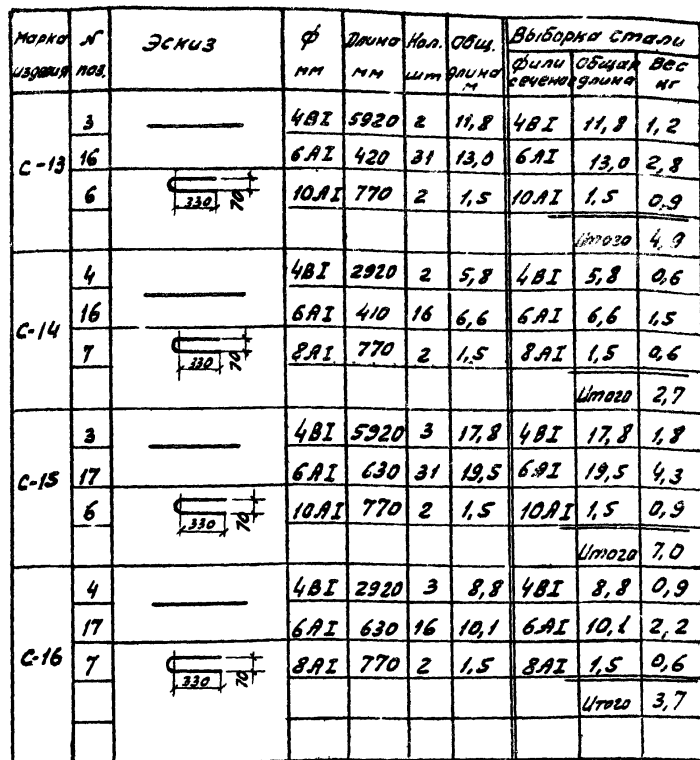 Марка изделия N поз. Эскиз ф мм Длина мм Кол. шт Общ. длина м Выборка стали
ф или сечение Общая длина Вес кг
С-13
3 4ВI 5920 2 11,8 4ВI 11,8 1,2
16 6АI 420 31 13,0 6АI 13,0 2,8
6 330 70 10АI 770 2 1,5 10АI 1,5 0,9
Итого 4,9
С-14
4 4ВI 2920 2 5,8 4ВI 5,8 0,6
16 6АI 410 16 6,6 6АI 6,6 1,5
7 330 70 8АI 770 2 1,5 8АI 1,5 0,6
Итого 2,7
С-15
3 4ВI 5920 3 17,8 4ВI 17,8 1,8
17 6АI 630 31 19,5 6АI 19,5 4,3
6 330 70 10АI 770 2 1,5 10АI 1,5 0,9
Итого 7,0
С-16
4 4ВI 2920 3 8,8 4ВI 8,8 0,9
17 6АI 630 16 10,1 6АI 10,1 2,2
7 330 70 8АI 770 2 1,5 8АI 1,5 0,6
Итого 3,7